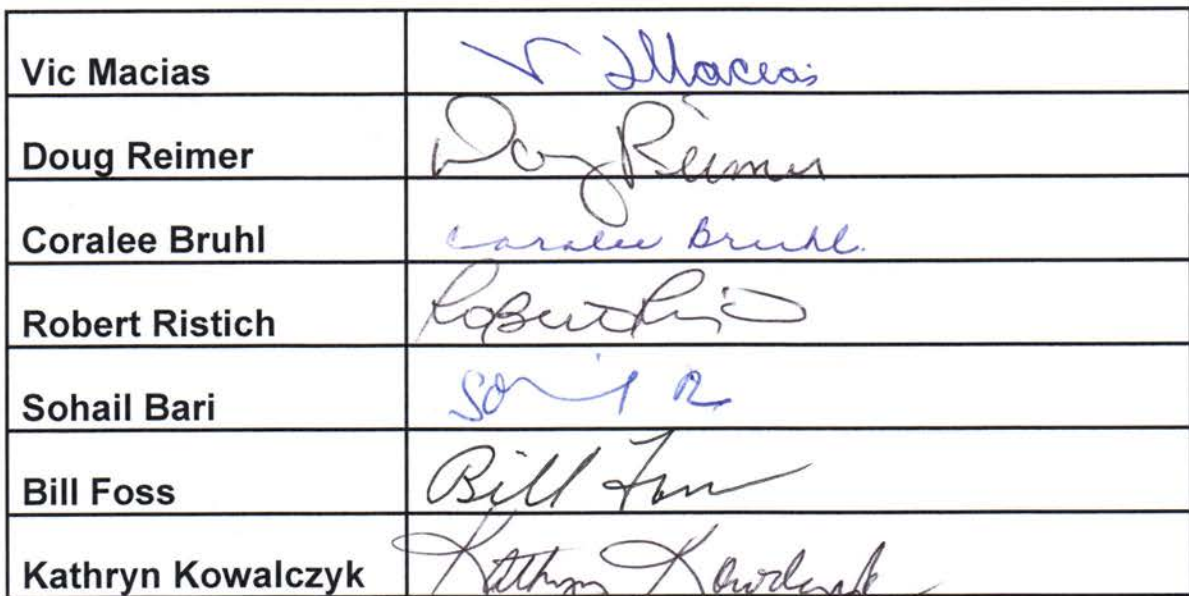 Vic Macias V Macias
Doug Reimer Doug Reimer
Coralee Bruhl Coralee Bruhl.
Robert Ristich Robert
Sohail Bari
Bill Foss Bill
Kathryn Kowalczyk Kathryn Kowalczyk